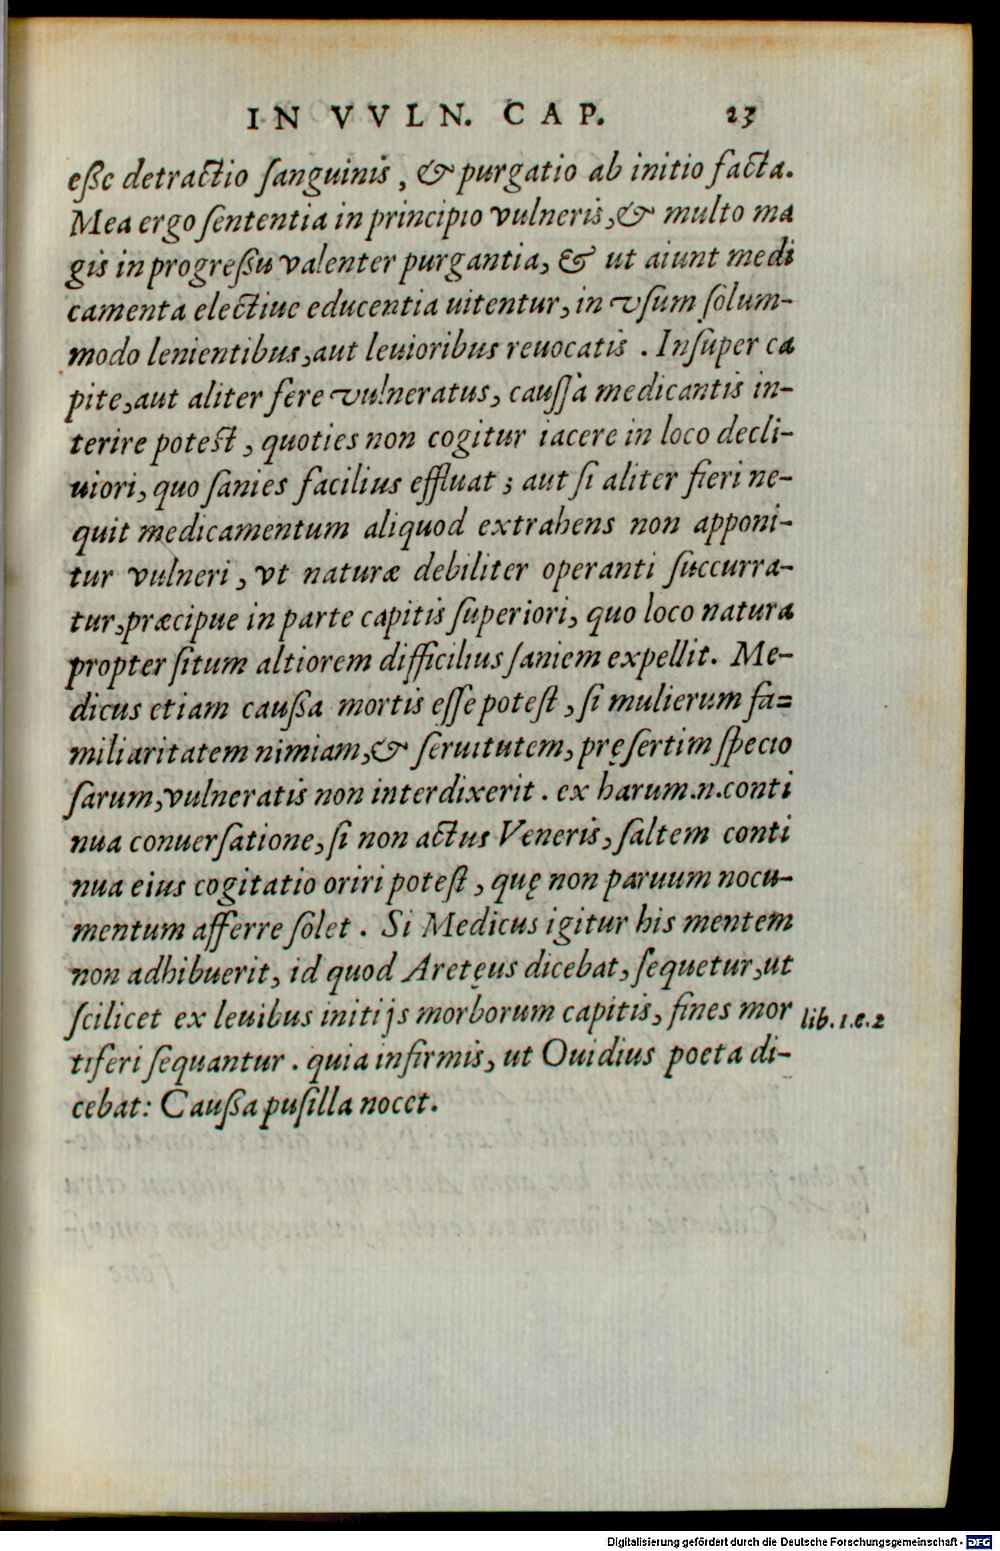 IN VVLN. CAP. 23
eße detractio ſanguinis, & purgatio ab initio facta.
Mea ergo ſententia in principio vulneris, & multo ma
gis in progreßu valenter purgantia, & ut aiunt medi
camenta electiue educentia uitentur, in vſum ſolum-
modo lenientibus, aut leuioribus reuocatis. Inſuper ca
pite, aut aliter fere vulneratus, cauſſa medicantis in-
terire poteſt, quoties non cogitur iacere in loco decli-
uiori, quo ſanies facilius effluat; aut ſi aliter fieri ne-
quit medicamentum aliquod extrahens non apponi-
tur vulneri, vt naturæ debiliter operanti ſuccurra-
tur, præcipue in parte capitis ſuperiori, quo loco natura
propter ſitum altiorem difficilius ſaniem expellit. Me-
dicus etiam caußa mortis eſſe poteſt, ſi mulierum fa=
miliaritatem nimiam, & ſeruitutem, pręſertim ſpecio
ſarum, vulneratis non interdixerit. ex harum .n. conti
nua conuerſatione, ſi non actus Veneris, ſaltem conti
nua eius cogitatio oriri poteſt, quę non paruum nocu-
mentum afferre ſolet. Si Medicus igitur his mentem
non adhibuerit, id quod Aretęus dicebat, ſequetur, ut
ſcilicet ex leuibus initijs morborum capitis, fines mor
lib. 1. c. 2
tiferi ſequantur. quia infirmis, ut Ouidius poeta di-
cebat: Caußa puſilla nocet.
Digitalisierung gefördert durch die Deutsche Forschungsgemeinschaft - DFG